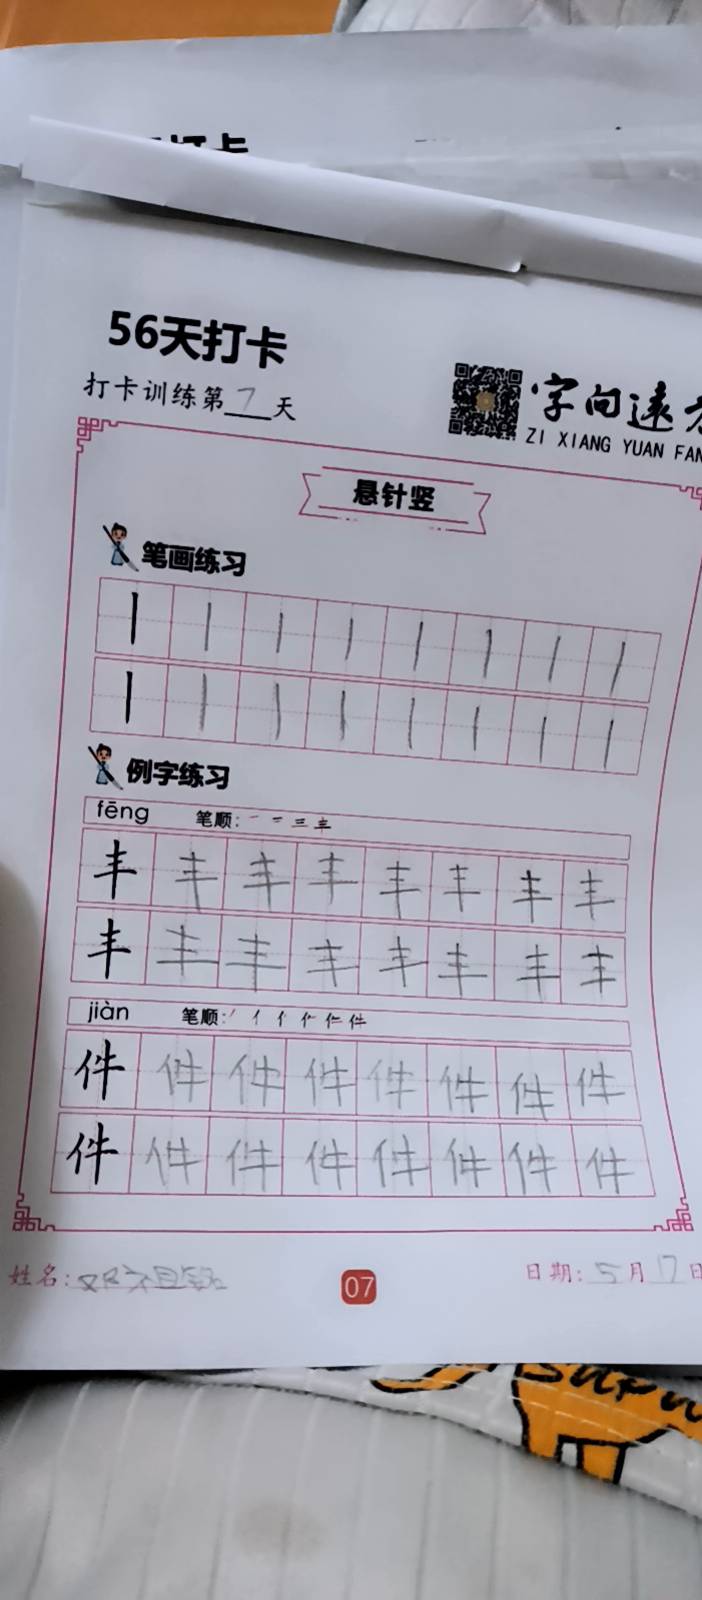 打卡
56天打卡
打卡训练第7天
字向远方
ZI XIANG YUAN FAN
悬针竖
笔画练习
例字练习
fēng 笔顺: 一 二 三 丰
丰 丰 丰 丰 丰 丰 丰 丰
丰 丰 丰 丰 丰 丰 丰 丰
jiàn 笔顺: 丿 亻 亻 仁 仁 件
件 件 件 件 件 件 件 件
件 件 件 件 件 件 件 件
姓名:
07
日期: 5月17日